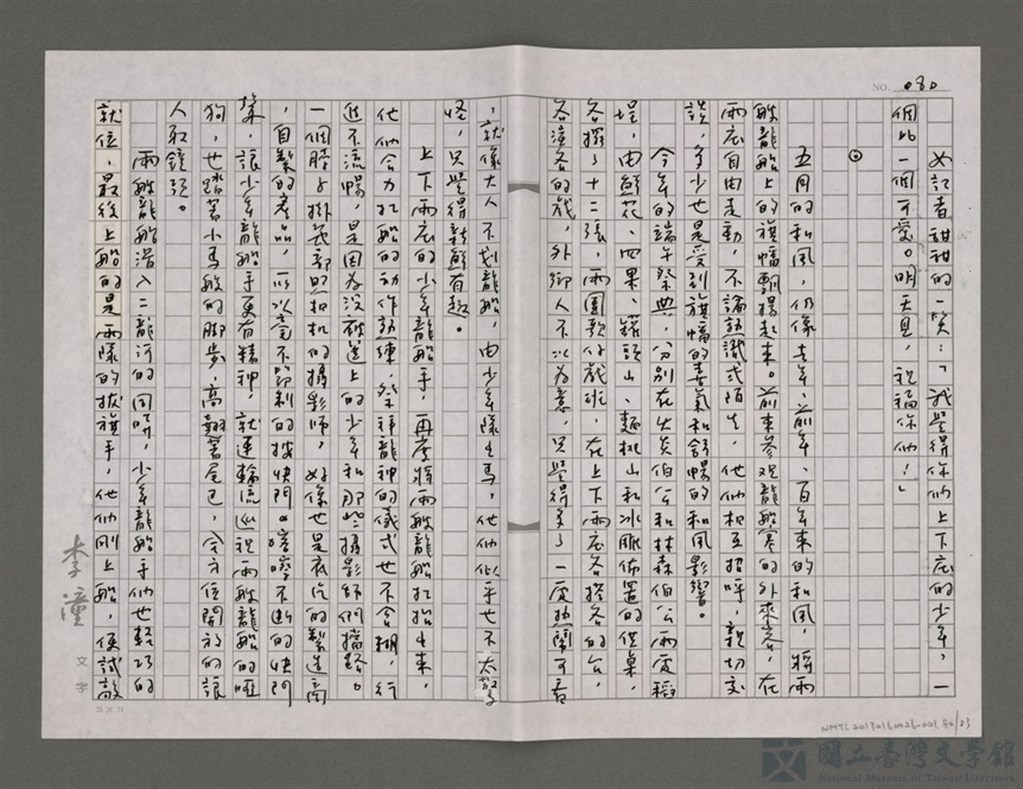 NO. 080
女記者甜甜的一笑：「我覺得你們上下庄的少年，一
個比一個可愛。明天見，祝福你們！」
⊙
五月的和風，仍像去年、前年、百年來的和風，將兩
艘龍船上的旗幡飄揚起來。前來參观龍船賽的外來客，在
兩庄自由走動，不論熟識或陌生，他們相互招呼，親切交
談，多少也是受到旗幡的喜氣和舒暢的和風影響。
今年的端午祭典，分別在火炎伯公和林森伯公兩處稻
埕，由鮮花、四果、罐頭山、麵桃山和冰雕佈置的供桌，
各擺了十二張，兩團歌仔戲班，在上下兩庄各搭各的台，
各演各的戲，外鄉人不以為意，只覺得多了一處熱鬧可看
，就像大人不划龍船，由少年隊出馬，他們似乎也不太驚
怪，只覺得新鮮有趣。
上下兩庄的少年龍船手，再度將兩艘龍船扛抬出來，
他們合力扛船的動作熟練，祭祀龍神的儀式也不含糊，行
進不流暢，是因為沒敢邁上的少年和那些攝影師們擋路。
一個脖子掛著部照相机的攝影師，好像也是底片的製造商
，自製的產品，所以毫不節制的按快門。喀嚓不斷的快門
聲，讓少年龍船手更有精神，就連輪流巡視兩艘龍船的啞
狗，也踏著小馬般的脚步，高翹著尾巴，全方位開放的讓
人取鏡頭。
兩艘龍船滑入二龍河的同時，少年龍船手們也輕巧的
就位，最後上船的是兩隊的拔旗手，他們剛上船，便試敲
李潼
文字
25×24
NMTL20130160026-001,80/83
國立臺灣文學館
National Museum of Taiwan Literature